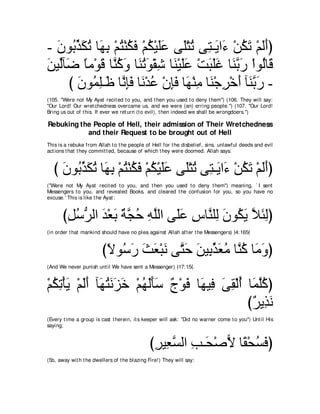 - أَلَمْ تَكُنْ ءَايَـتِى تُتْلَى عَلَيْكُمْ فَكُنْتُمْ بِهَا تُكَذِّبُونَ
قَالُواْ رَبَّنَا غَلَبَتْ عَلَيْنَا شِقْوَتُنَا وَكُنَّا قَوْماً ضَآلِّينَ
- رَبَّنَآ أَخْرِجْنَا مِنْهَا فَإِنْ عُدْنَا فَإِنَّا ظَـلِمُونَ )
(105. "Were not My Ayat recited to you, and then you used to deny them'') (106. They will say:
"Our Lord! Our wretchedness overcame us, and we were (an) erring people.'') (107. "Our Lord!
Bring us out of this. If ever we return (to evil), then indeed we shall be wrongdoers.'')
Rebuking the People of Hell, their admission of Their Wretchedness
and their Request to be brought out of Hell
This is a rebuke from Allah to the people of Hell for the disbelief, sins, unlawful deeds and evil
actions that they committed, because of which they were doomed. Allah says:
(أَلَمْ تَكُنْ ءَايَـتِى تُتْلَى عَلَيْكُمْ فَكُنْتُمْ بِهَا تُكَذِّبُونَ )
("Were not My Ayat recited to you, and then you used to deny them'') meaning, `I sent
Messengers to you, and revealed Books, and cleared the confusion for you, so you have no
excuse.' This is like the Ayat:
(لِئَلاَّ يَكُونَ لِلنَّاسِ عَلَى اللَّهِ حُجَّةٌ بَعْدَ الرُّسُلِ)
(in order that mankind should have no plea against Allah after the Messengers) [4:165]
(وَمَا كُنَّا مُعَذِّبِينَ حَتَّى نَبْعَثَ رَسُولاً)
(And We never punish until We have sent a Messenger) [17:15].
(كُلَّمَا أُلْقِىَ فِيهَا فَوْجٌ سَأَلَهُمْ خَزَنَتُهَآ أَلَمْ يَأْتِكُمْ
نَذِيرٌ)
(Every time a group is cast therein, its keeper will ask: "Did no warner come to you'') Until His
saying;
(فَسُحْقًا لاًّصْحَـبِ السَّعِيرِ)
(So, away with the dwellers of the blazing Fire!) They will say: